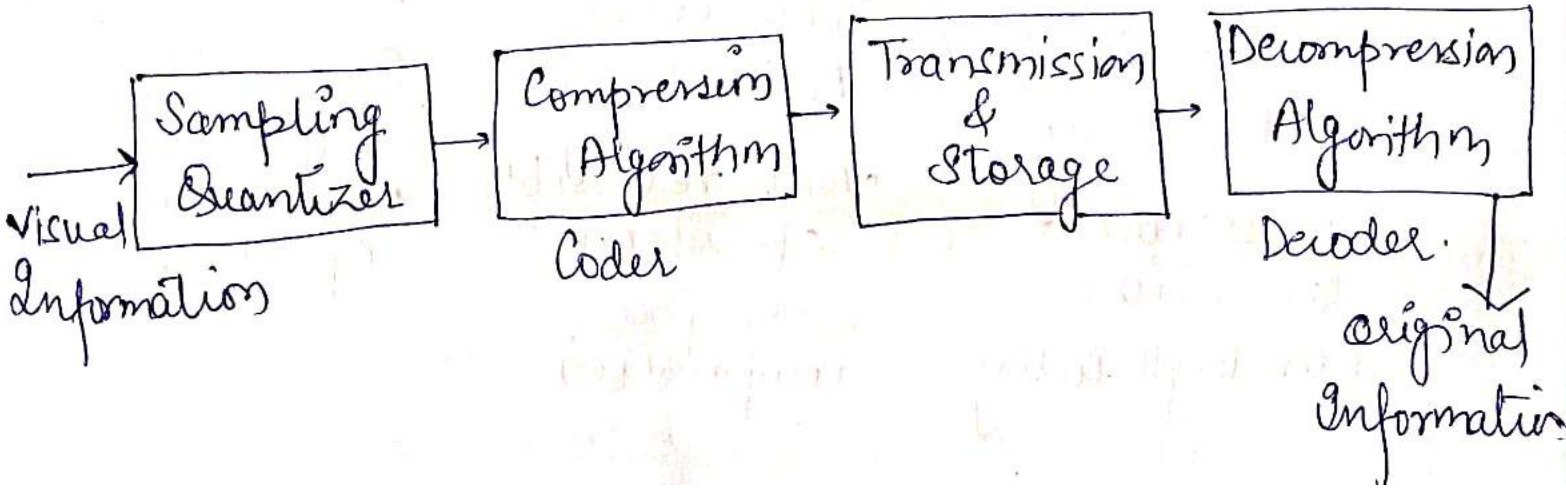 Visual
Information
Sampling
Quantizer
Compression
Algorithm
Coder
Transmission
&
Storage
Decompression
Algorithm
Decoder.
Original
Information